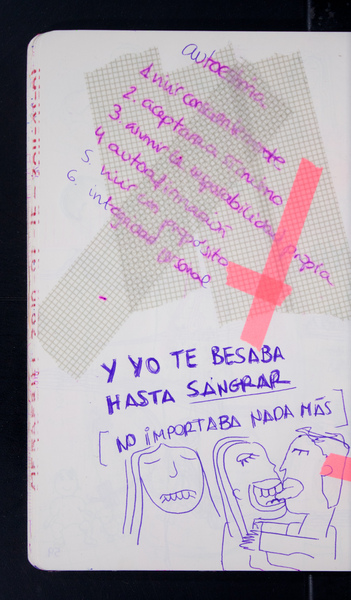 autoestima
1. vivir conscientemente
2. aceptarme a mí mismo
3. asumir la responsabilidad propia
4. autoafirmación
5. vivir con propósito
6. integridad personal
Y YO TE BESABA
HASTA SANGRAR
[NO IMPORTABA NADA MÁS]